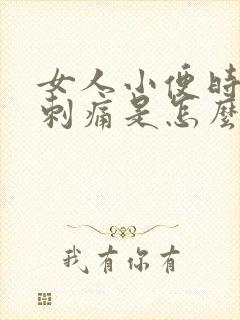 女人小便时
刺痛是怎麽
我有你有